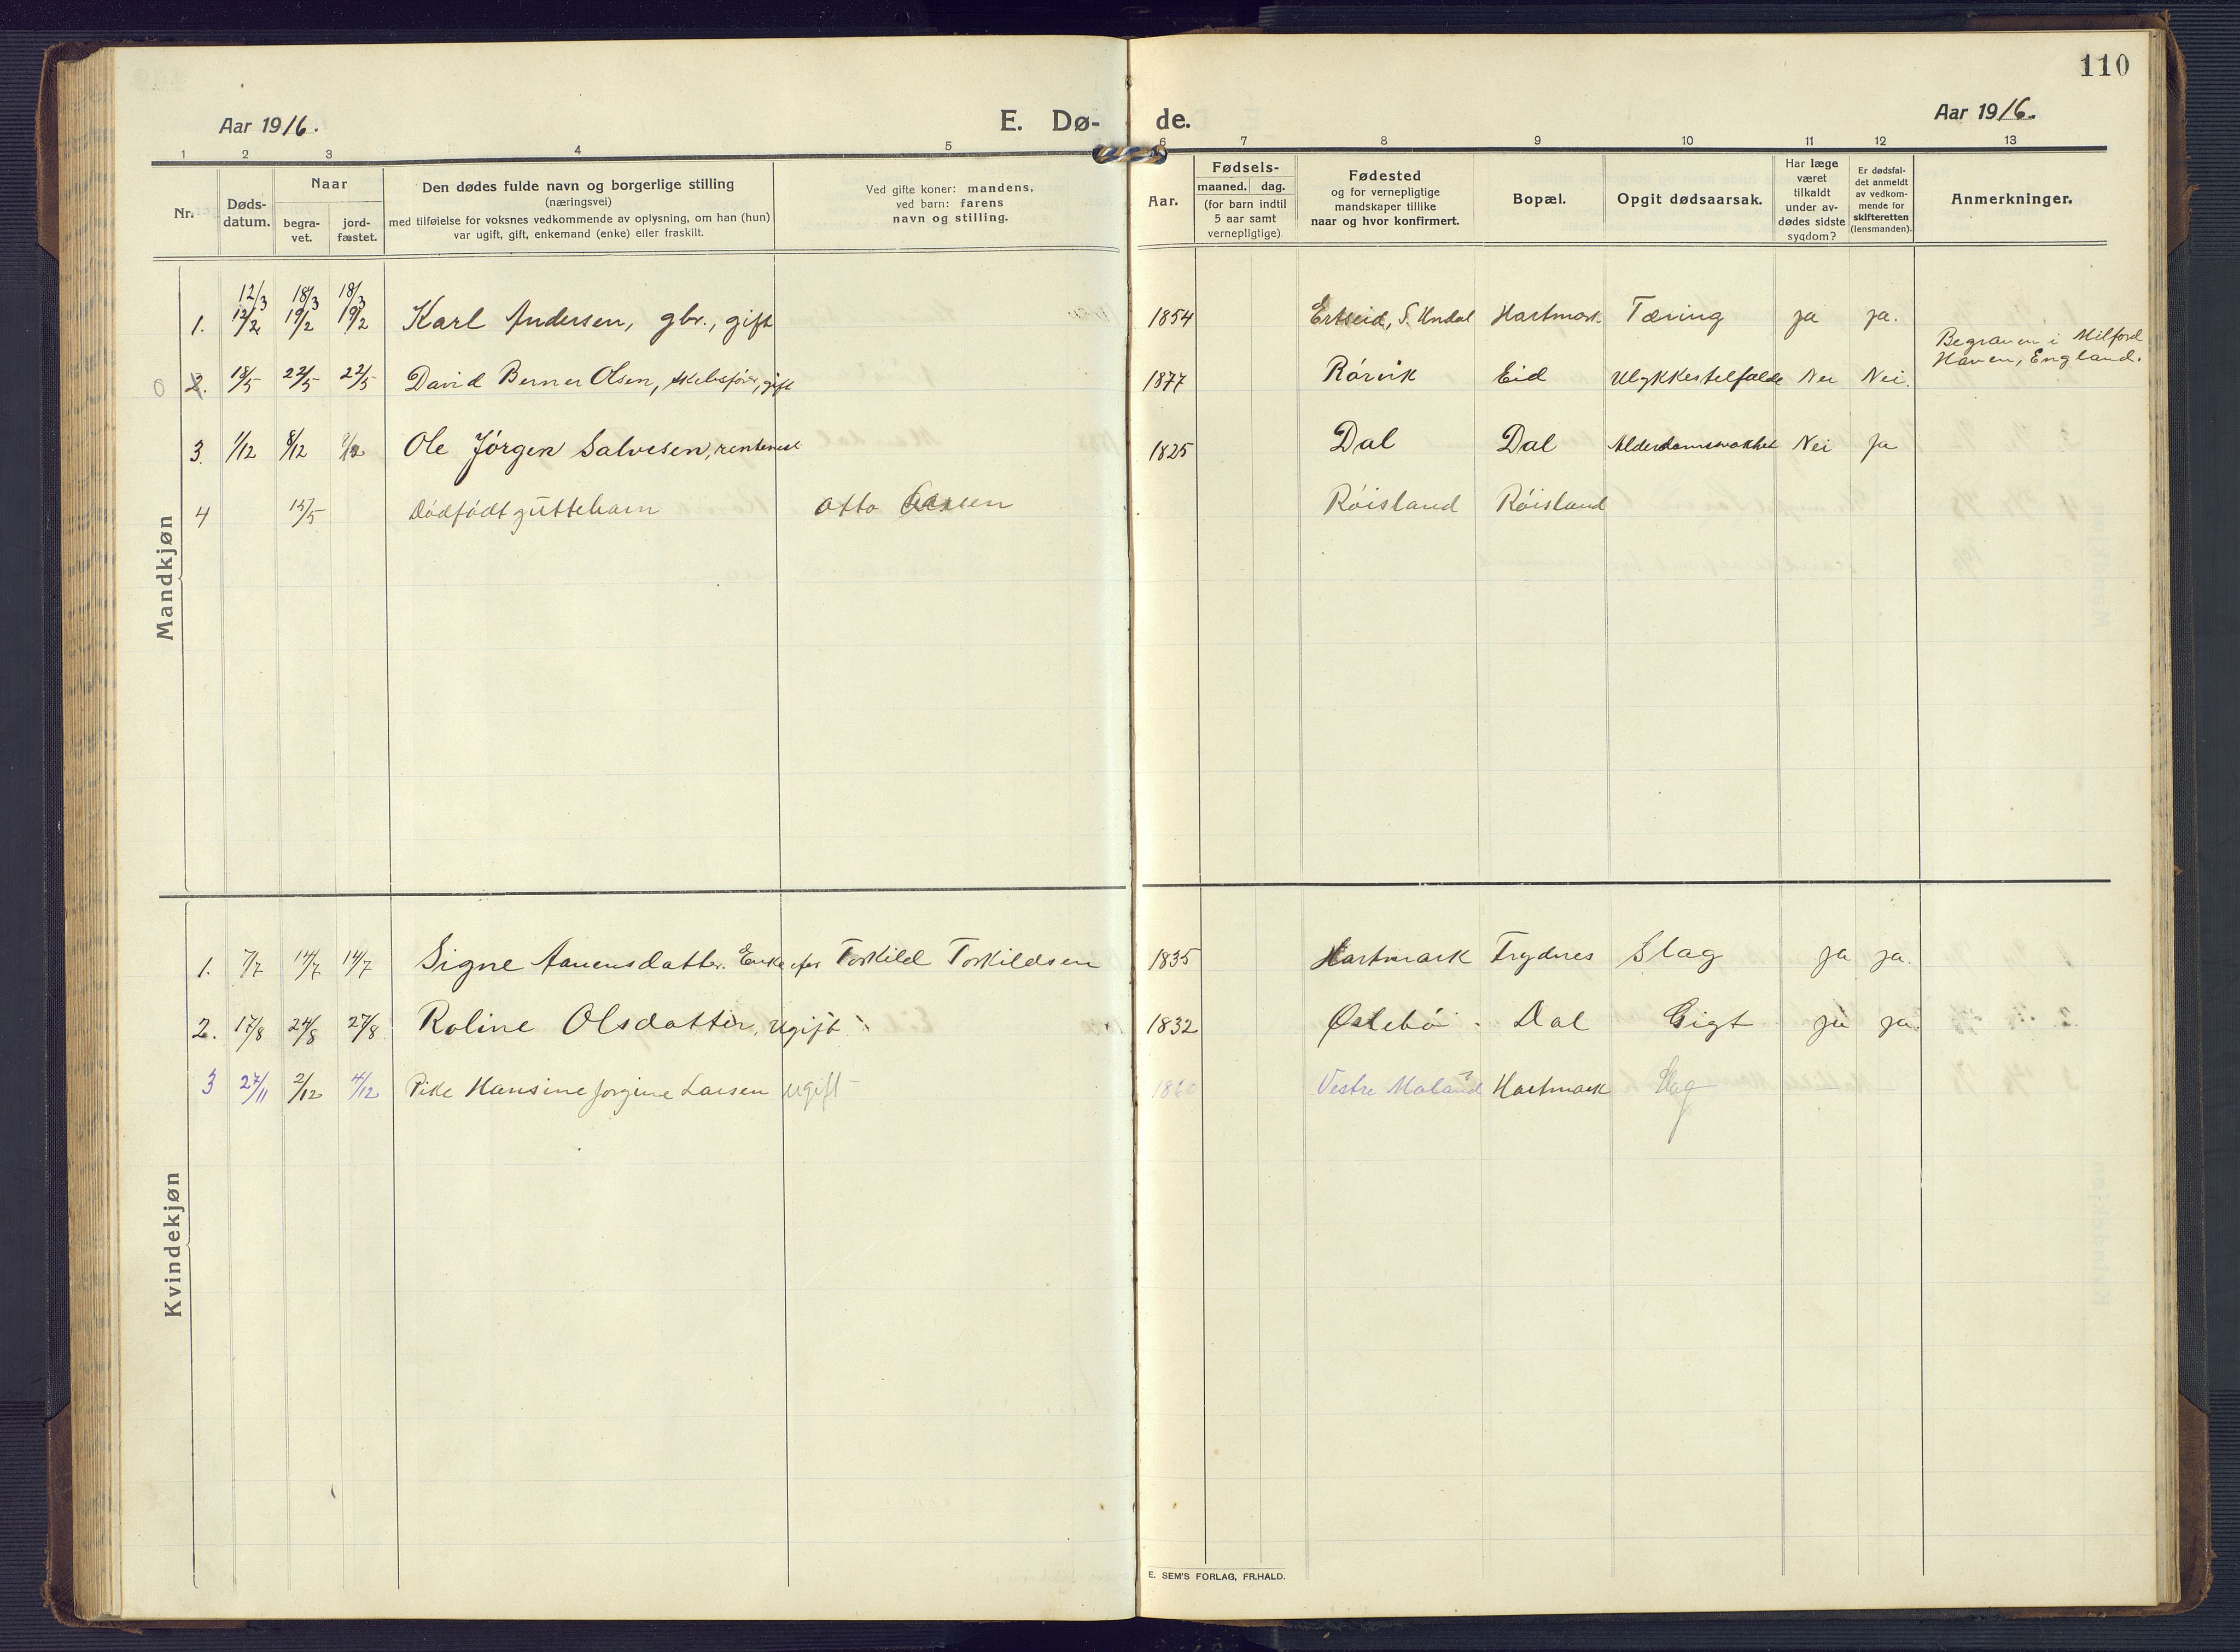 110
Aar 1916.
E. Dø-
de.
Aar 1916.
1 2 3 4 5 6 7 8 9 10 11 12 13
Nr.
Døds-
datum.
Naar
begra-
vet.
jord-
fæstet.
Den dødes fulde navn og borgerlige stilling
(næringsvei)
med tilføielse for voksnes vedkommende av oplysning, om han (hun)
var ugift, gift, enkemand (enke) eller fraskilt.
Ved gifte koner: mandens,
ved barn: farens
navn og stilling.
Aar.
Fødsels-
maaned. dag.
(for barn indtil
5 aar samt
vernepligtige).
Fødested
og for vernepligtige
mandskaper tillike
naar og hvor konfirmert.
Bopæl.
Opgit dødsaarsak.
Har læge
været
tilkaldt
under av-
dødes sidste
sygdom?
Er dødsfal-
det anmeldt
av vedkom-
mende for
skifteretten
(lensmanden).
Anmerkninger.
Mandkjøn
12/3 18/3 18/3
1. 12/2 19/2 19/2 Karl Andersen, gbr., gift 1854 S. Undal Hartmark Tæring ja ja.
Begraven i Milford
Haven, England.
2. 18/5 22/5 22/5 David Berner Olsen, gift 1877 Rørvik Eid Ulykkestilfælde Nei Nei.
3. 1/12 8/12 Ole Jørgen Salvesen, 1825 Dal Dal Alderdomssvakhet Nei Ja
4 Dødfødt guttebarn Otto Røisland Røisland
Kvindekjøn
1. 7/7 14/7 14/7 Signe Aanensdatter. Enke efter Torkild Torkildsen 1835 Hartmark Frydnes Slag ja ja.
2. 17/8 24/8 27/8 Roline Olsdatter, Ugift 1832 Østebø Dal Gigt ja ja.
3 27/11 2/12 4/12 Pike Hansine Jorgine Larsen ugift 1860 Vestre Moland? Hartmark Slag —
E. SEM'S FORLAG, FR.HALD.